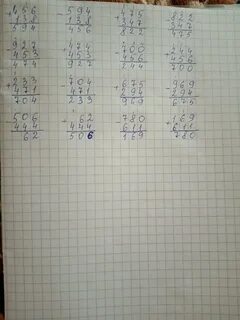 +456 -594 +475 -822
138 138 347 347
594 456 822 475
-927 +474 -700 +244
453 453 456 456
474 927 244 700
+233 -704 +675 -969
471 471 294 294
704 233 969 675
-506 +62 -780 +169
444 444 611 611
62 506 169 780